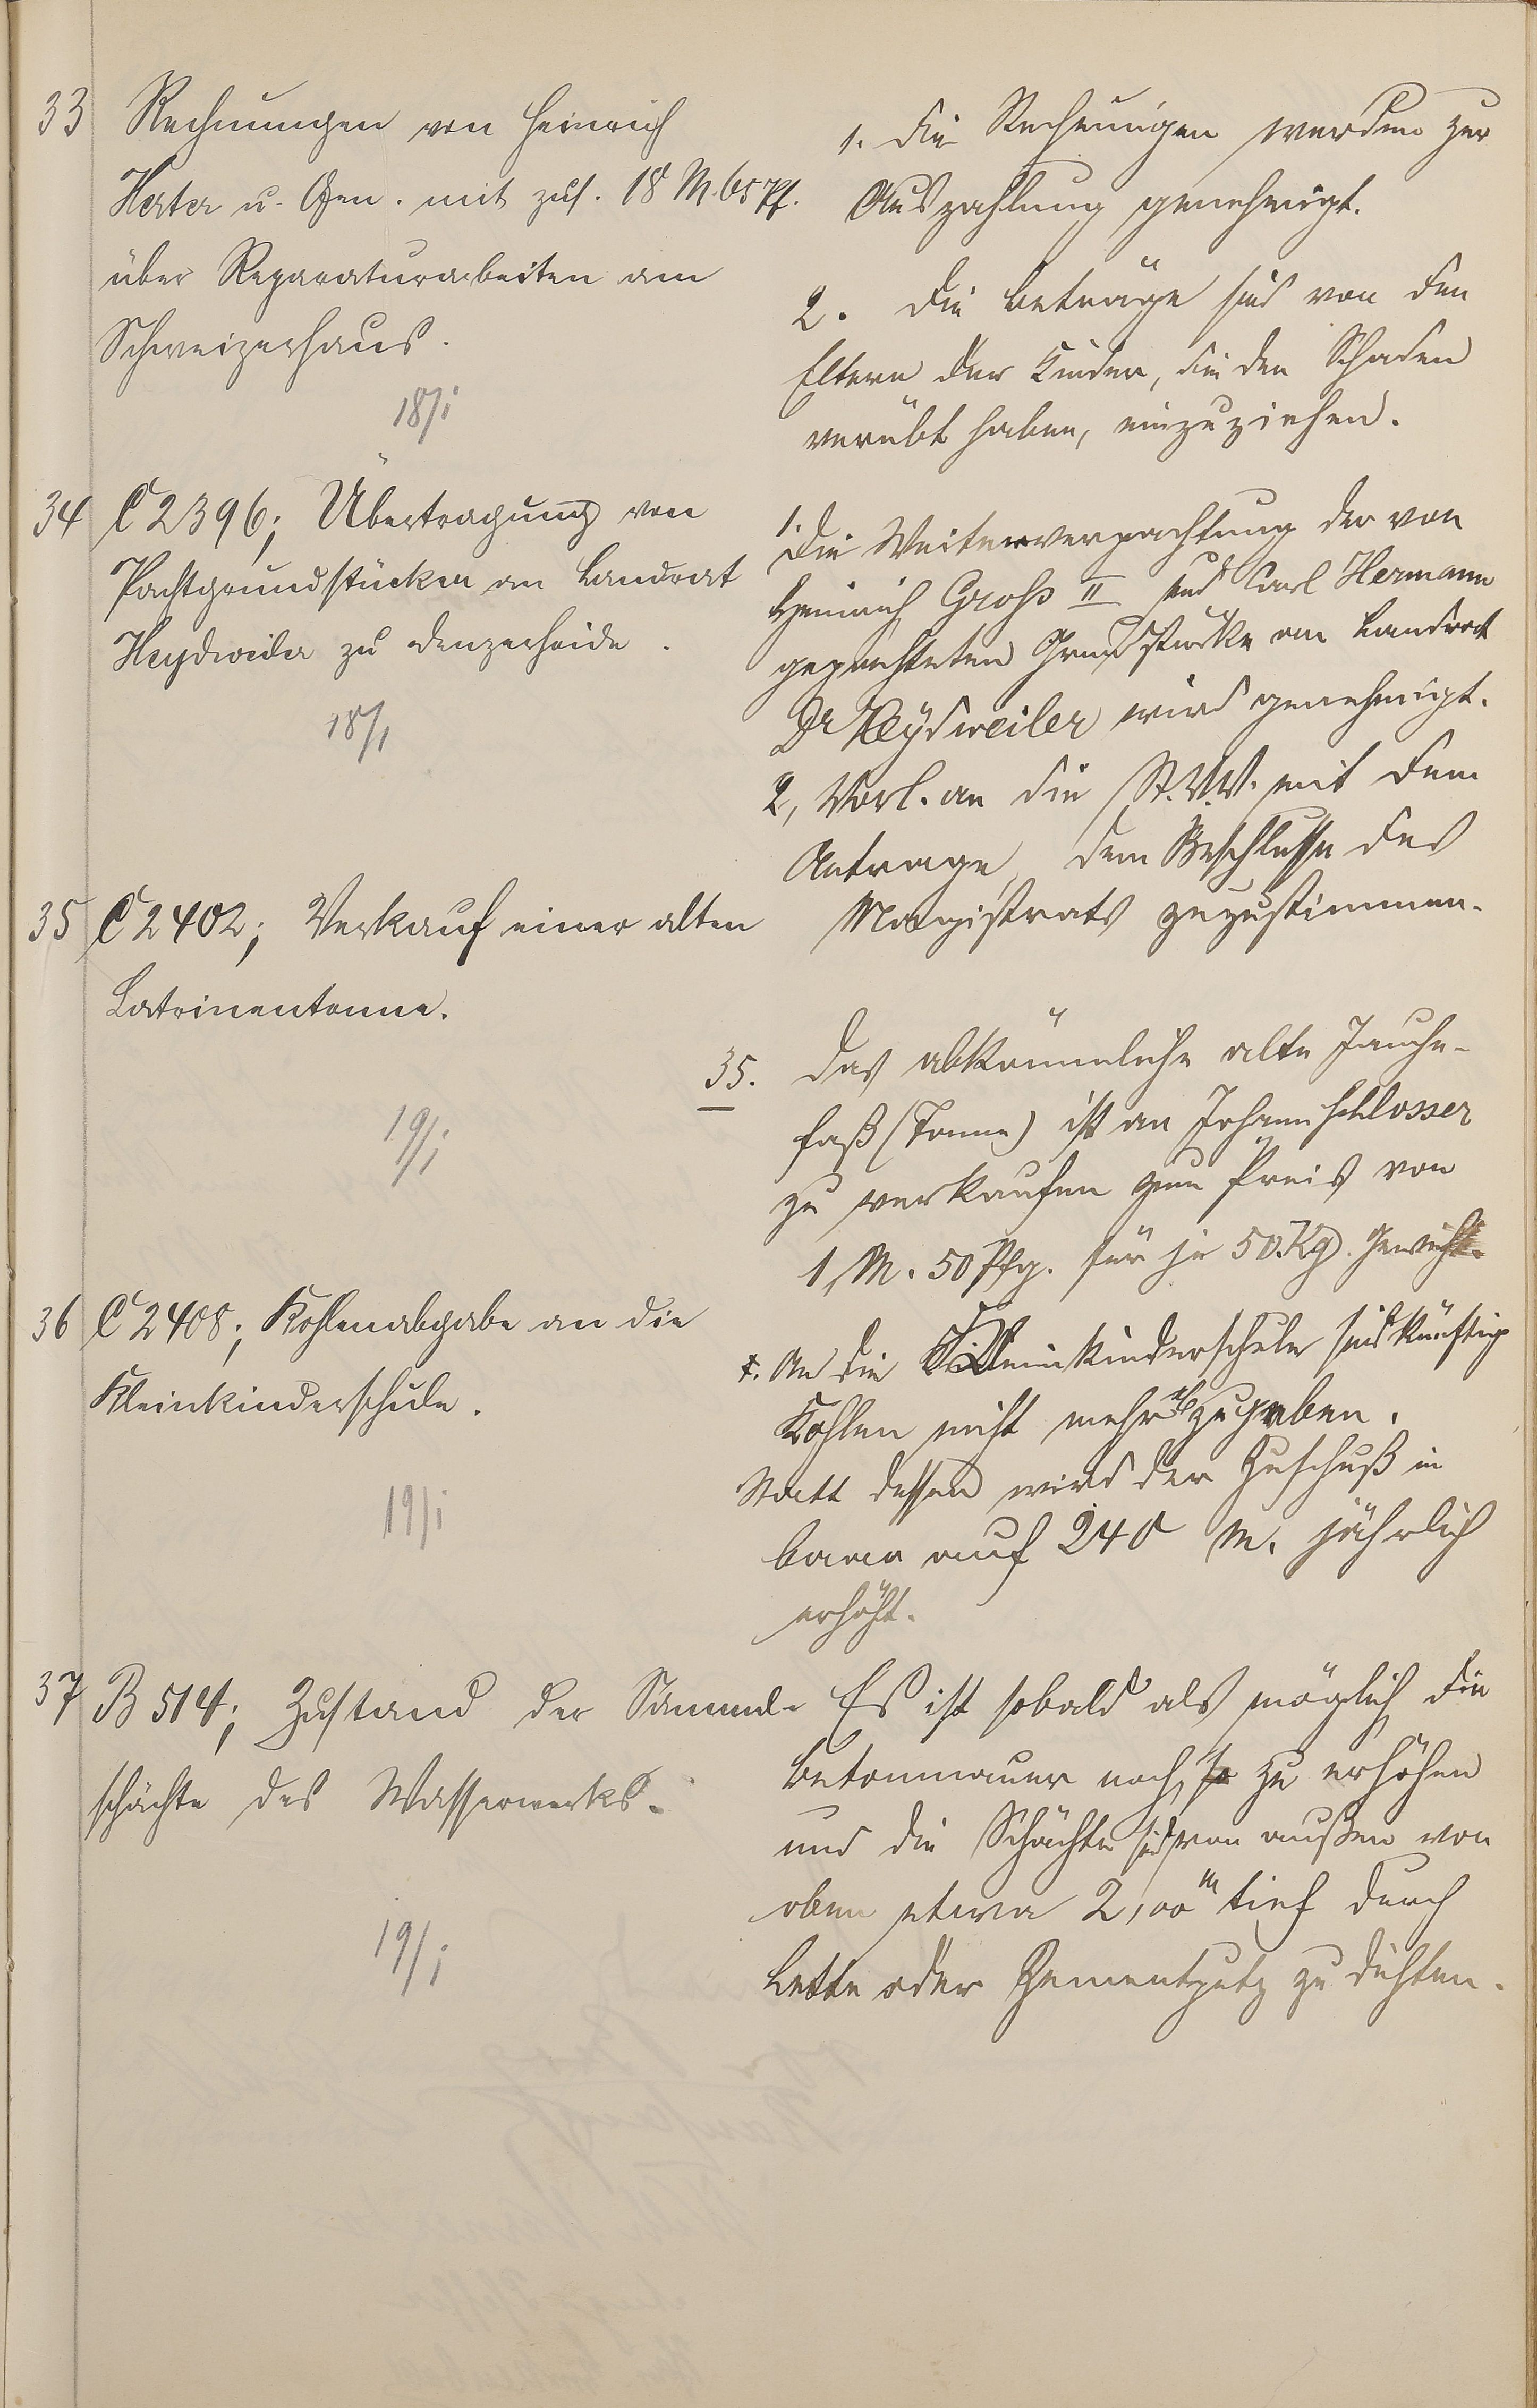 33 Rechnungen von Heinrich
Herter u. Gen. mit zus. 18 M. 65 Pf.
über Reparaturarbeiten am
Schweizerhaus.
18/I
1. Die Rechnungen werden zur
Auszahlung genehmigt.
2. Die Beträge sind von den
Eltern der Kinder, die den Schaden
verübt haben, einzuziehen.
34 C 2396; Übertragung von
Pachtgrundstücken an Landrat
Heydweiler zu Denzerheide.
18/I
1. Die Weiterverpachtung der von
Heinrich Groß II und Carl Hermann
gepachteten Grundstücke an Landrat
Dr Heydweiler wird genehmigt.
2, Vorl. an die St.V.V. mit dem
Antrage, dem Beschlusse des
Magistrats zuzustimmen.
35 C 2402; Verkauf einer alten
Latrinentonne.
19/I
35. Das abkömmliche alte Jauche-
faß (Tonne) ist an Johann Schlosser
zu verkaufen zum Preis von
1 M. 50 Pfg. für je 50 Kg. Gewicht.
36 C 2408; Kohlenabgabe an die
Kleinkinderschule.
19/I
An die Kleinkinderschule sind künftig
Kohlen nicht mehr abzugeben.
Statt dessen wird der Zuschuß in
baar auf 240 M. jährlich
erhöht.
37 B 514; Zustand der Sammel-
schächte des Wasserwerks.
19/I
Es ist sobald als möglich die
Betonmauer noch zu erhöhen
und die Schächte sind von außen von
oben etwa 2,00 m tief durch
Lette oder Zementputz zu dichten.